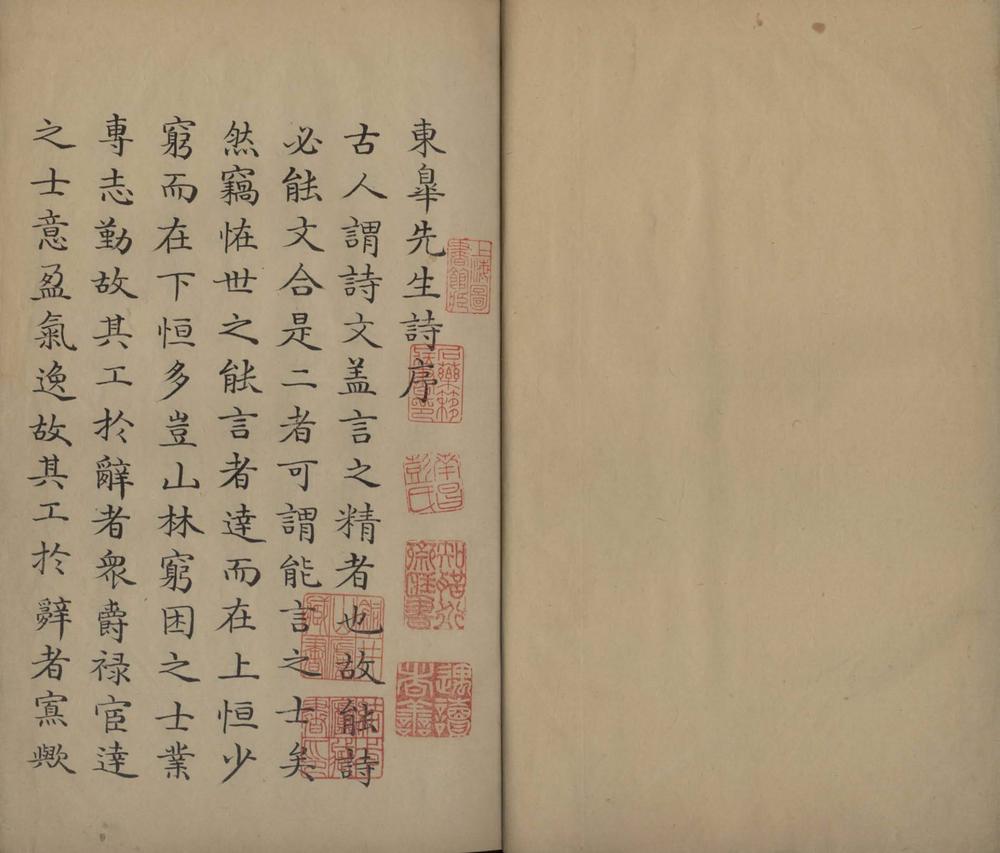 東皐先生詩序
古人謂詩文盖言之精者也故能詩
必能文合是二者可謂能言之士矣
然竊恠世之能言者達而在上恒少
窮而在下恒多豈山林窮困之士業
專志勤故其工於辭者衆爵禄宦達
之士意盈氣逸故其工於辭者寡歟
上海圖書館藏
南昌彭氏
知聖道齋藏書
遇讀者善